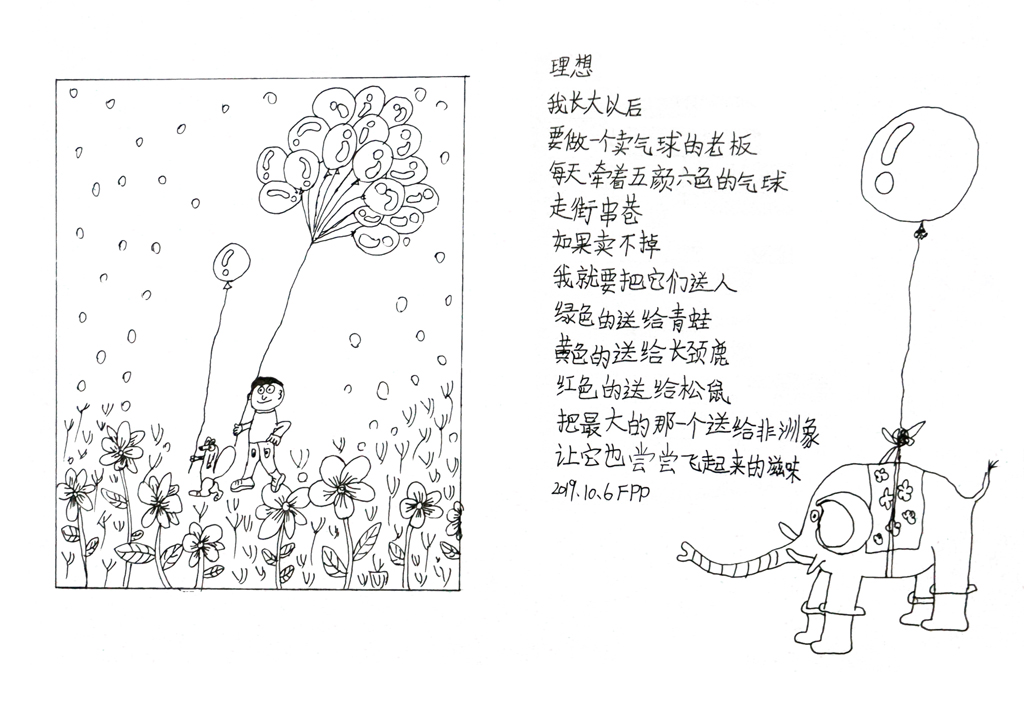 理想
我长大以后
要做一个卖气球的老板
每天牵着五颜六色的气球
走街串巷
如果卖不掉
我就要把它们送人
绿色的送给青蛙
黄色的送给长颈鹿
红色的送给松鼠
把最大的那一个送给非洲象
让它也尝尝飞起来的滋味
2019.10.6 FPD